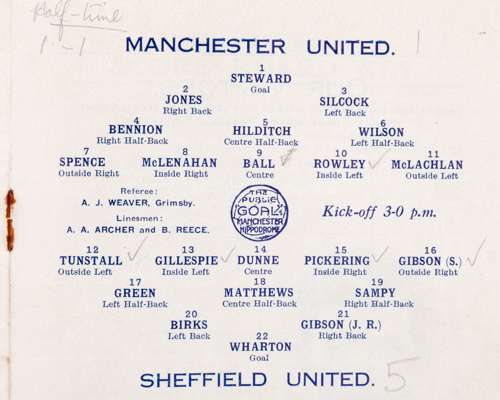 Half-time
1 - 1
MANCHESTER UNITED. 1
1
STEWARD
Goal
2 3
JONES SILCOCK
Right Back Left Back
4 5 6
BENNION HILDITCH WILSON
Right Half-Back Centre Half-Back Left Half-Back
7 8 9 10 11
SPENCE McLENAHAN BALL ROWLEY McLACHLAN
Outside Right Inside Right Centre Inside Left Outside Left
Referee:
A. J. WEAVER, Grimsby.
Linesmen:
A. A. ARCHER and B. REECE.
THE
PUBLIC
"GOAL"
MANCHESTER
HIPPODROME
Kick-off 3-0 p.m.
12 13 14 15 16
TUNSTALL GILLESPIE DUNNE PICKERING GIBSON (S.)
Outside Left Inside Left Centre Inside Right Outside Right
17 18 19
GREEN MATTHEWS SAMPY
Left Half-Back Centre Half-Back Right Half-Back
20 21
BIRKS GIBSON (J. R.)
Left Back Right Back
22
WHARTON
Goal
SHEFFIELD UNITED. 5